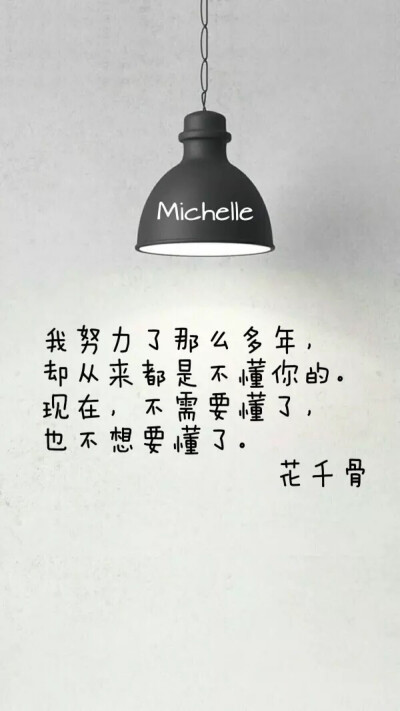 Michelle
我努力了那么多年,
却从来都是不懂你的。
现在,不需要懂了,
也不想要懂了。
花千骨